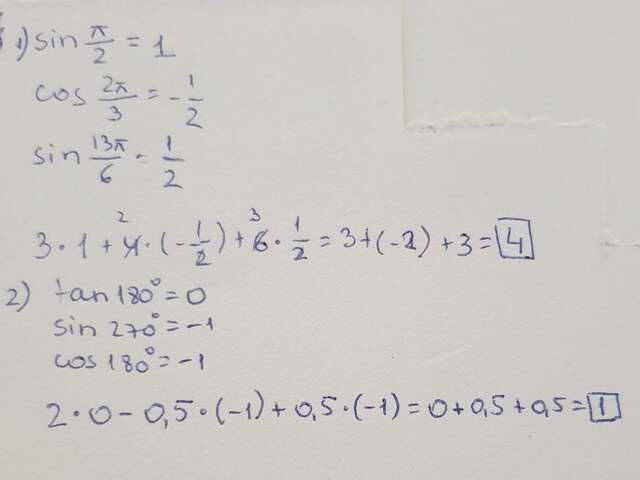 1) sin π/2 = 1
cos 2π/3 = -1/2
sin 13π/6 = 1/2
3 · 1 + 4 · (-1/2) + 6 · 1/2 = 3 + (-2) + 3 = 4
2) tan 180° = 0
sin 270° = -1
cos 180° = -1
2 · 0 - 0,5 · (-1) + 0,5 · (-1) = 0 + 0,5 + 0,5 = 1